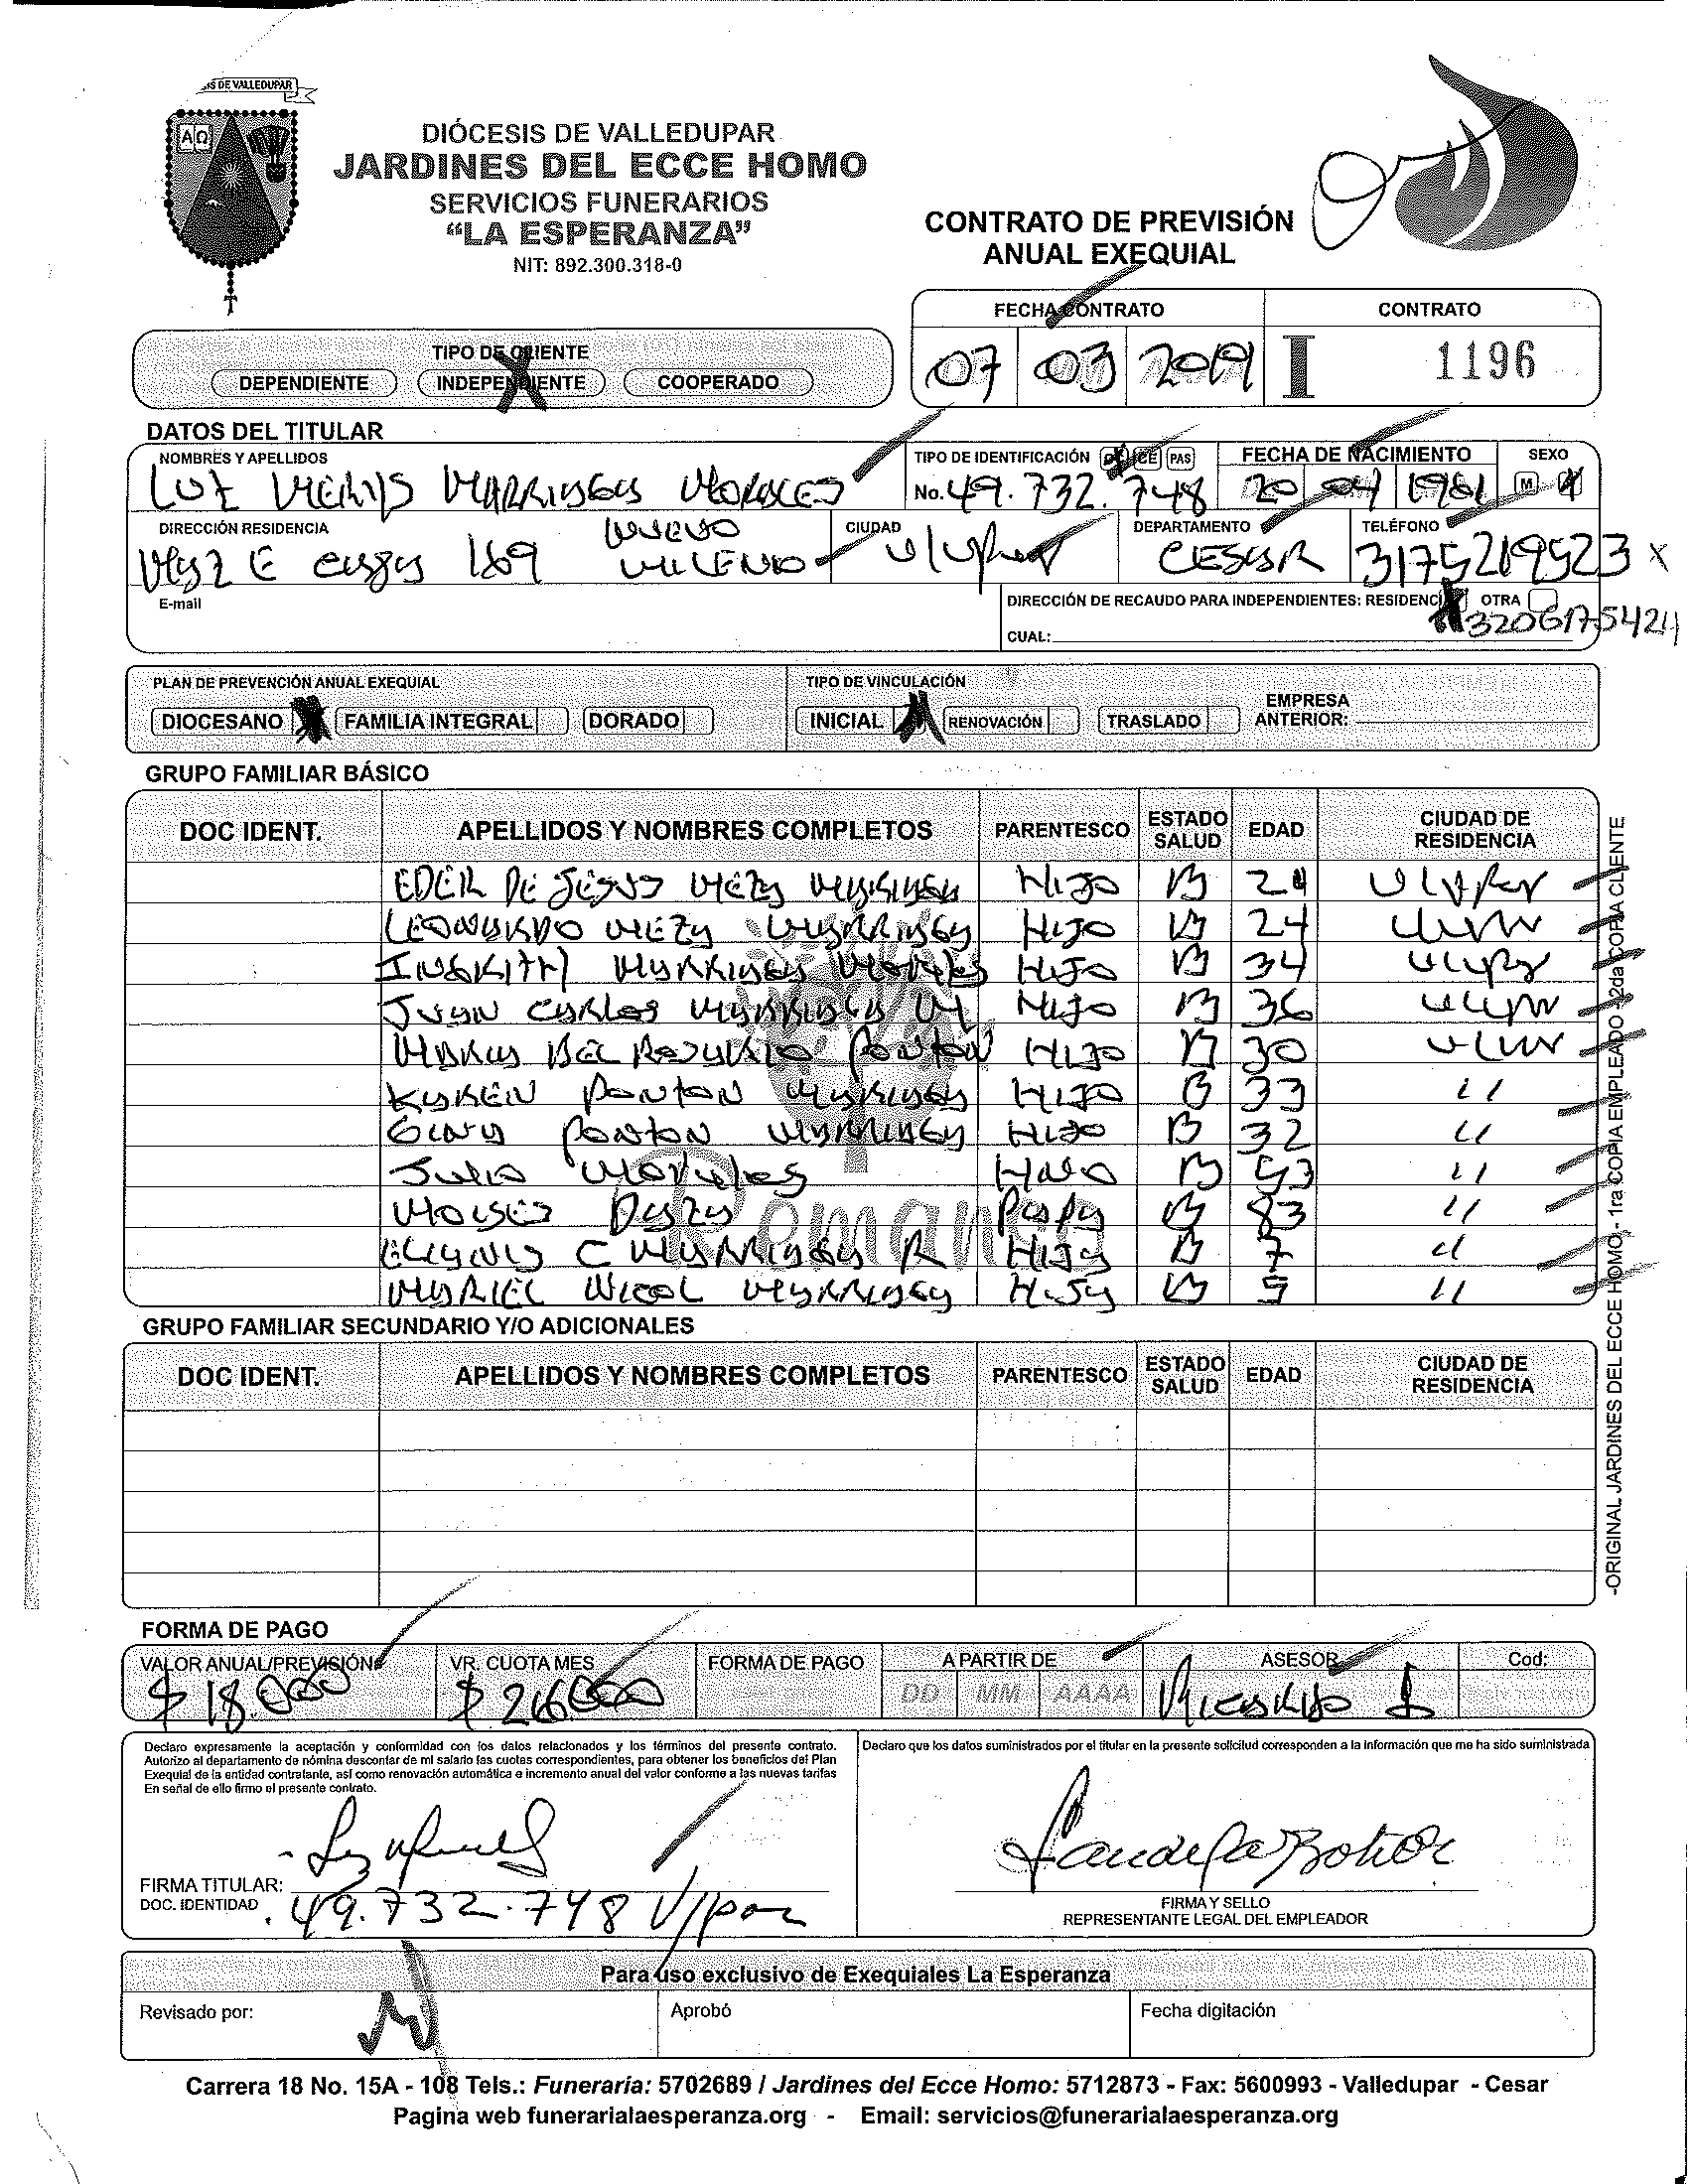 SIS DE VALLEDUPAR
A Ω
DIÓCESIS DE VALLEDUPAR
JARDINES DEL ECCE HOMO
SERVICIOS FUNERARIOS
“LA ESPERANZA”
NIT: 892.300.318-0
CONTRATO DE PREVISIÓN
ANUAL EXEQUIAL
FECHA CONTRATO CONTRATO
07 03 2019 I 1196
TIPO DE CLIENTE
DEPENDIENTE INDEPENDIENTE COOPERADO
DATOS DEL TITULAR
NOMBRES Y APELLIDOS TIPO DE IDENTIFICACIÓN CE PAS FECHA DE NACIMIENTO SEXO
LUZ MERIS MARRIAGA MORALES No. 49.732.748 20 04 1961 M
DIRECCIÓN RESIDENCIA CIUDAD DEPARTAMENTO TELÉFONO
MZ E CASA 189 NUEVO MILENIO V/UPAR CESAR 3175219523 X
E-mail
DIRECCIÓN DE RECAUDO PARA INDEPENDIENTES: RESIDENCIA OTRA
3206175424
CUAL:
PLAN DE PREVENCIÓN ANUAL EXEQUIAL TIPO DE VINCULACIÓN
DIOCESANO FAMILIA INTEGRAL DORADO INICIAL RENOVACIÓN TRASLADO EMPRESA ANTERIOR:
GRUPO FAMILIAR BÁSICO
DOC IDENT. APELLIDOS Y NOMBRES COMPLETOS PARENTESCO ESTADO SALUD EDAD CIUDAD DE RESIDENCIA
EDER DE JESUS MEZA MARRIAGA HIJO B 24 V/UPAR
LEONARDO MEZA MARRIAGA HIJO B 24
MARRIAGA MORALES HIJO B 34
JUAN CARLOS MARRIAGA M HIJO B 36
MARIA DEL ROSARIO PONTON HIJO B 30
KAREN PONTON MARRIAGA HIJO B 33 //
GINA PONTON MARRIAGA HIJO B 32 //
JULIO MORALES B 53 //
MOISES DAZA PAPA B 83 //
C MARRIAGA R HIJA B 7 //
MARIEL NICOL MARRIAGA HIJA B 5 //
Remanso
GRUPO FAMILIAR SECUNDARIO Y/O ADICIONALES
DOC IDENT. APELLIDOS Y NOMBRES COMPLETOS PARENTESCO ESTADO SALUD EDAD CIUDAD DE RESIDENCIA
-ORIGINAL JARDINES DEL ECCE HOMO - 1ra COPIA EMPLEADO - 2da COPIA CLIENTE
FORMA DE PAGO
VALOR ANUAL/PREVISIÓN VR. CUOTA MES FORMA DE PAGO A PARTIR DE ASESOR Cod:
$ 18.000 $ 26000 DD MM AAAA
Declaro expresamente la aceptación y conformidad con los datos relacionados y los términos del presente contrato.
Autorizo al departamento de nómina descontar de mi salario las cuotas correspondientes, para obtener los beneficios del Plan
Exequial de la entidad contratante, así como renovación automática e incremento anual del valor conforme a las nuevas tarifas
En señal de ello firmo el presente contrato.
Declaro que los datos suministrados por el titular en la presente solicitud corresponden a la información que me ha sido suministrada
FIRMA TITULAR:
DOC. IDENTIDAD 49.732.748 V/par
FIRMA Y SELLO
REPRESENTANTE LEGAL DEL EMPLEADOR
Para uso exclusivo de Exequiales La Esperanza
Revisado por: Aprobó Fecha digitación
Carrera 18 No. 15A - 108 Tels.: Funeraria: 5702689 / Jardines del Ecce Homo: 5712873 - Fax: 5600993 - Valledupar - Cesar
Pagina web funerarialaesperanza.org - Email: servicios@funerarialaesperanza.org